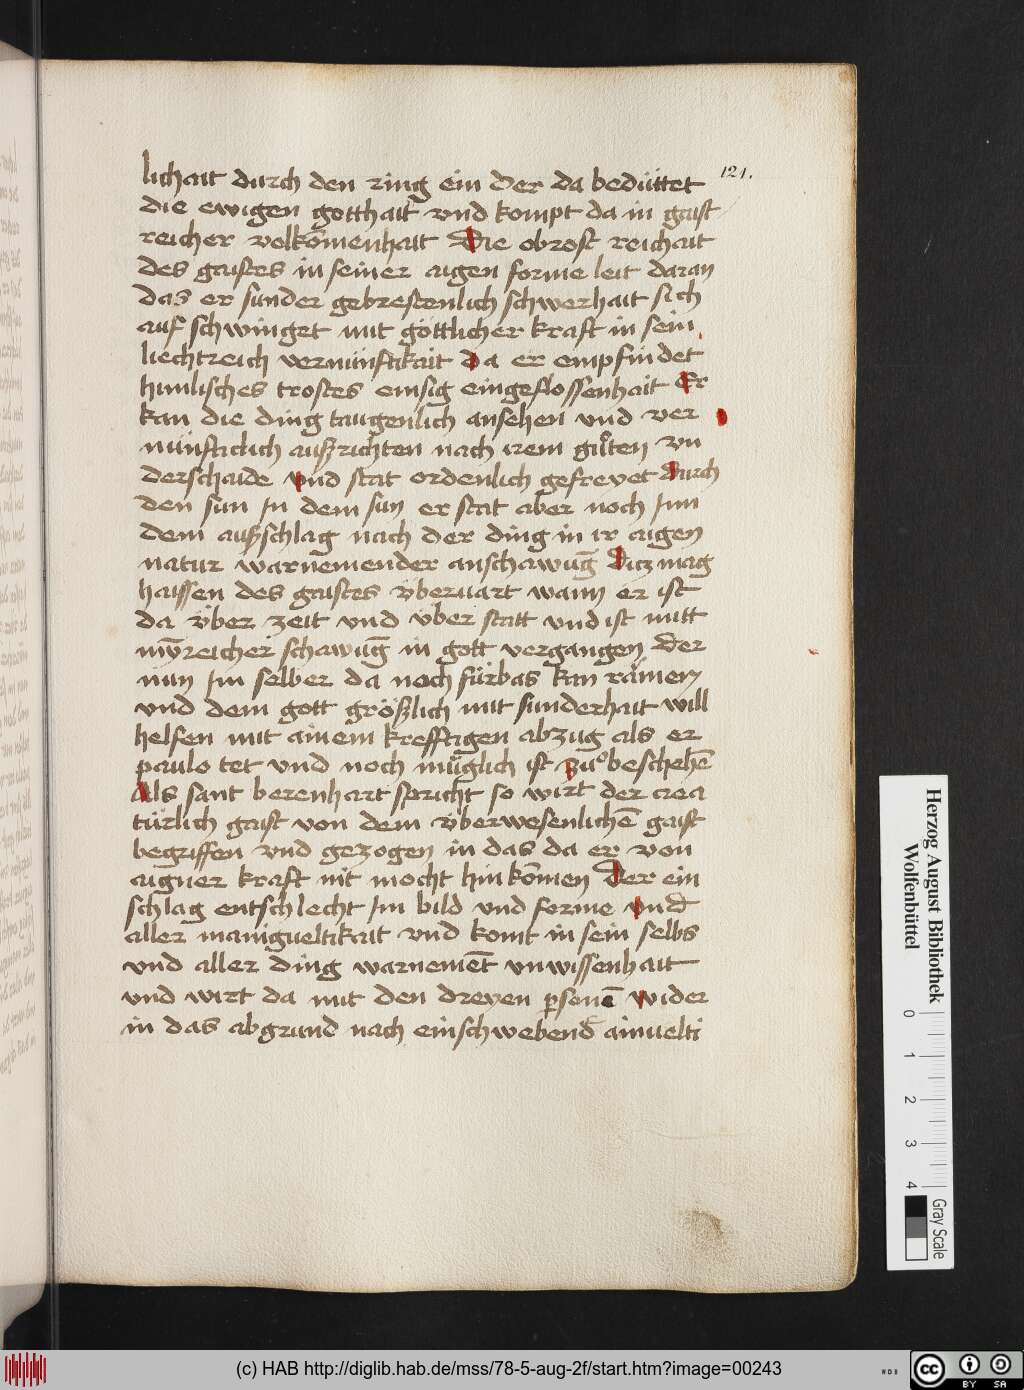 121.
lichait durch den ring ein der da bedüttet
die ewigen gotthait vnd kompt da in gaist
reicher volkōmenhait Die obrost reichait
des gaistes in seiner aigen forme leit daran
das er sunder gebrestenlich schwerhait sich
auf schwinget mit göttlicher kraft in sein
liechtreich vernünftikait da er empfindet
himlisches trostes emsig eingeflossenhait Er
kan die ding taugenlich ansehen vnd ver
nünfticlich auszrichten nach irem vn
derschaide vnd stat ordenlich gefreyet durch
den sun In dem sun er stat aber noch Inn
dem auszschlag nach der ding in ir aigen
natur warnemender anschawūg Dicz mag
haissen des gaistes vberuart wann er ist
da vber zeit vnd vber statt vnd ist mitt
mȳreicher schawūg in gott vergangen der
nun Im selber da noch fürbas kan rämen
vnd dem gott gröszlich mit sunderhait will
helfen mit ainem krefftigen abzug als er
paulo tet vnd noch müglich ist zuͦ beschehē
Als sant berenhart spricht so wirt der crea
türlich gaist von dem vberwesenlichē gaist
begriffen vnd gezogen in das da er von
aigner kraft nit mocht hin kōmen Der ein
schlag entschlecht Im bild vnd forme vnd
aller manigueltikait vnd komt in sein selbs
vnd aller ding warnemēt vnwissenhait
vnd wirt da mit den dreyen psonē wider
in das abgrund nach einschwebend ainuelti
Herzog August Bibliothek
Wolfenbüttel
0 1 2 3 4
Gray Scale
(c) HAB http://diglib.hab.de/mss/78-5-aug-2f/start.htm?image=00243
cc BY SA